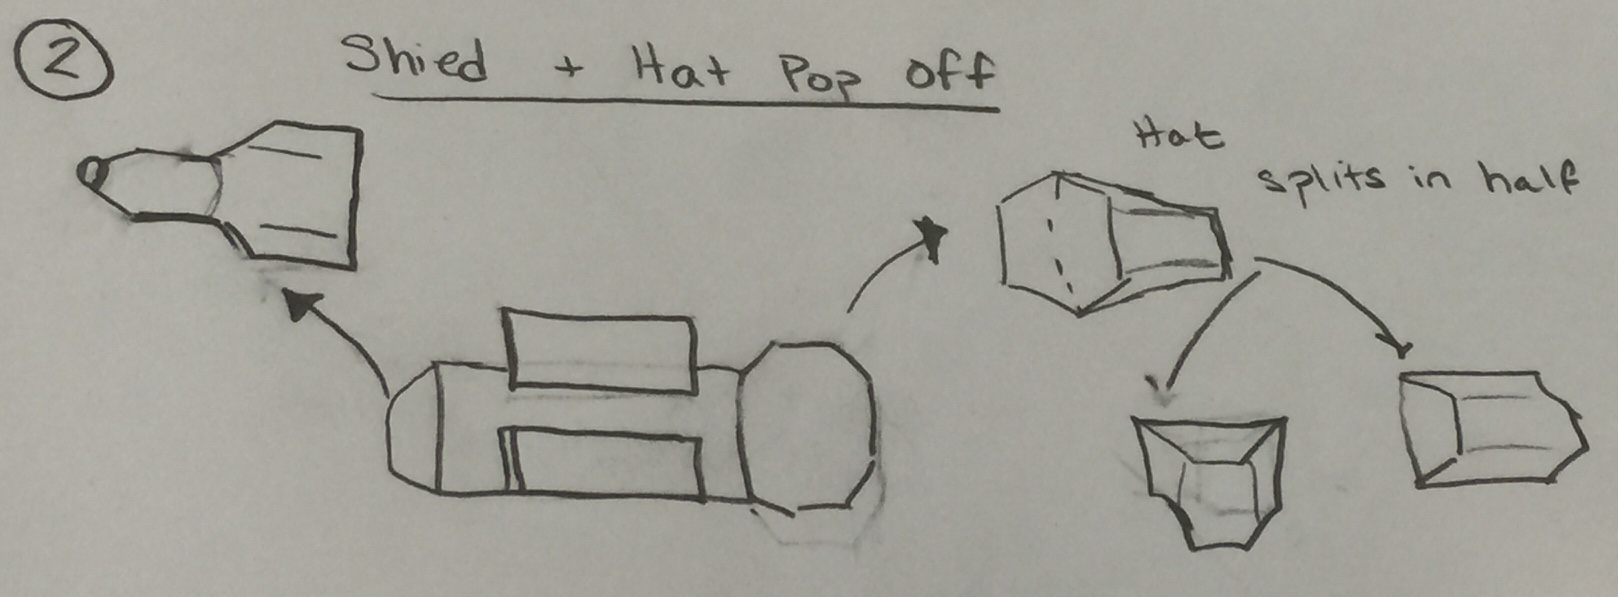 2
Shied + Hat Pop off
Hat
splits in half